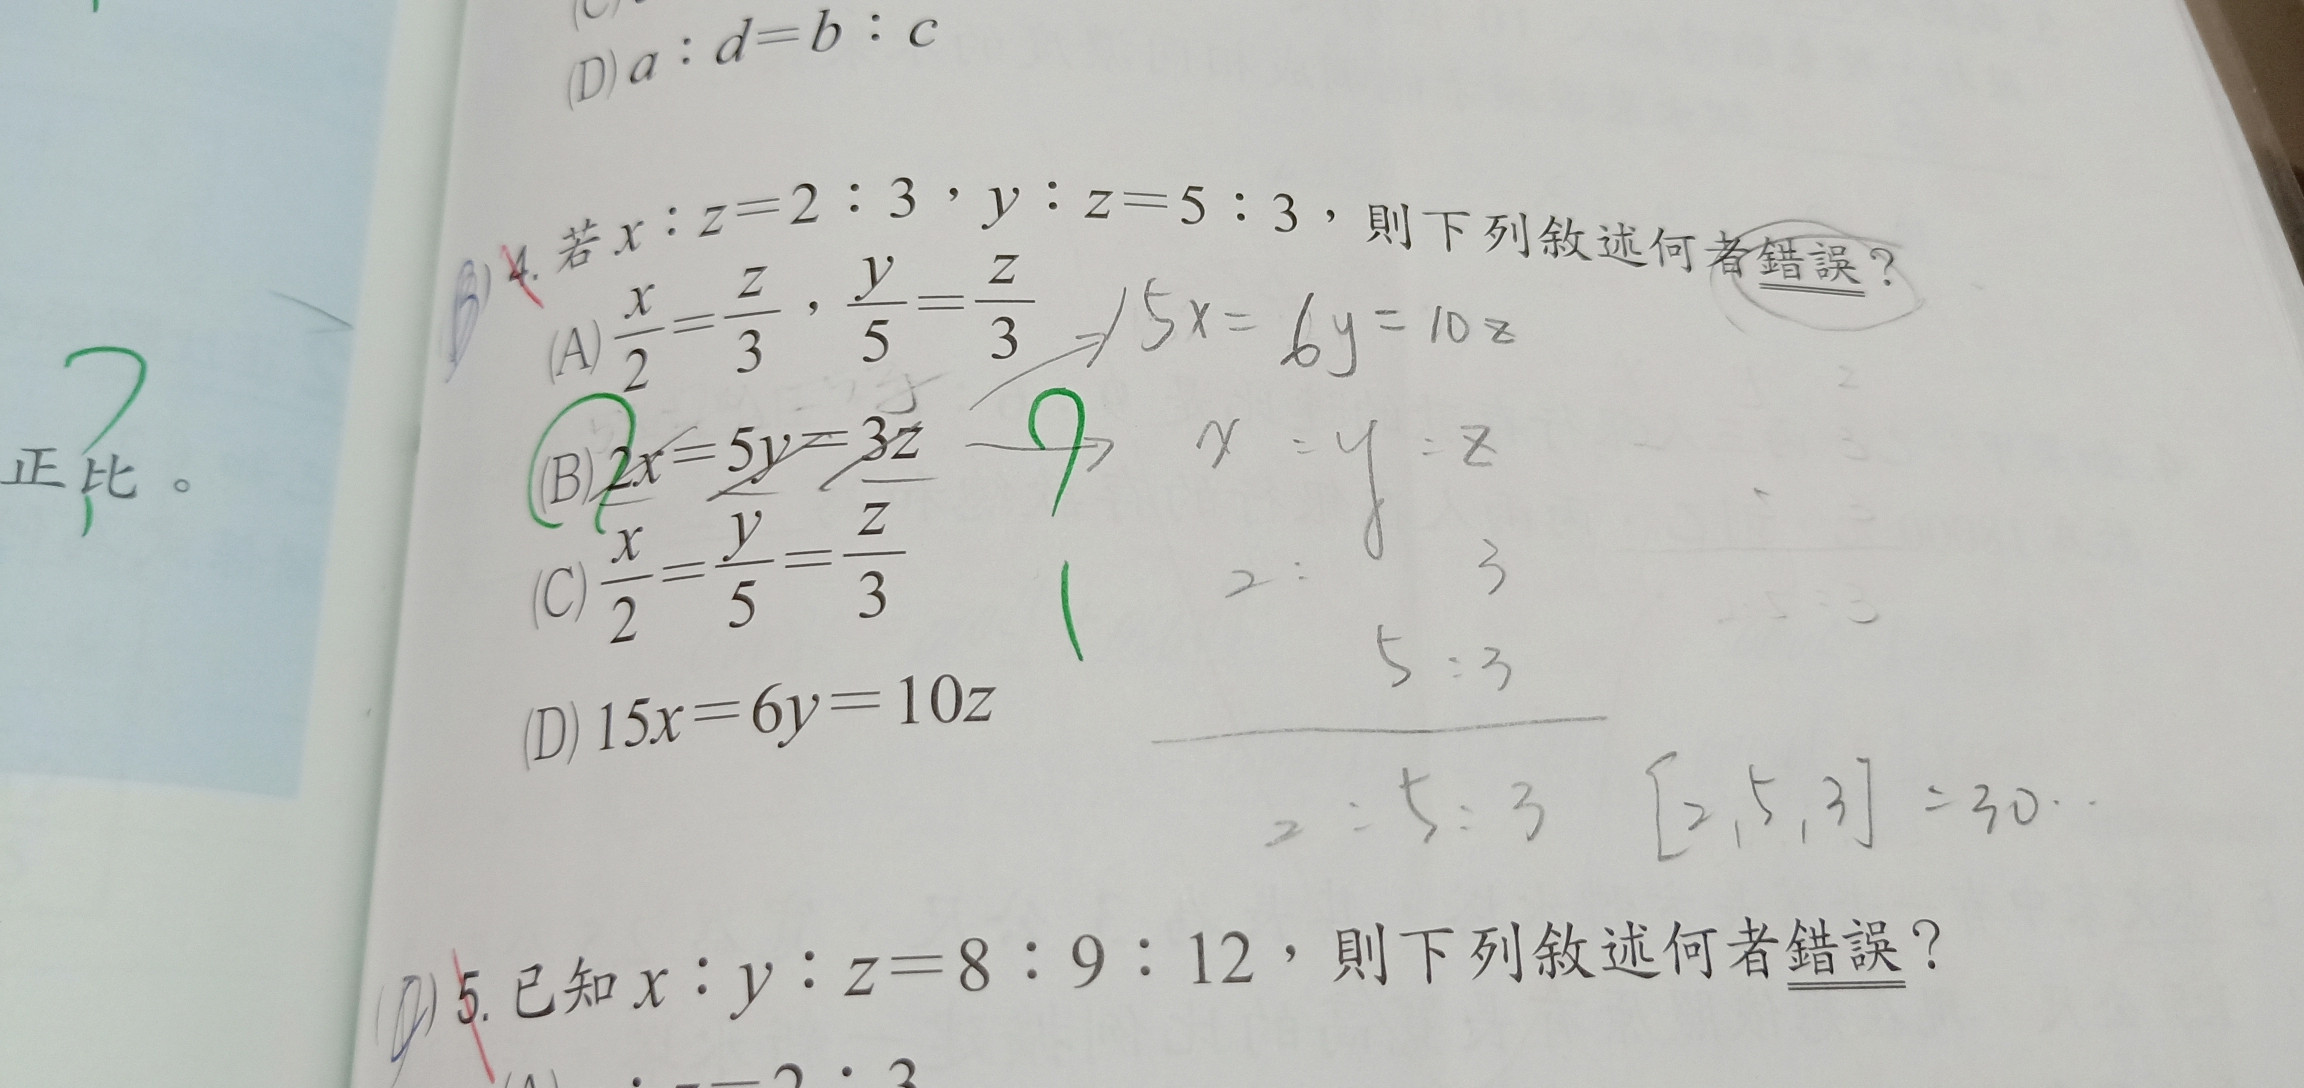 (D) a：d＝b：c
(B) 4. 若 x：z＝2：3，y：z＝5：3，則下列敘述何者錯誤？
(A) x/2＝z/3，y/5＝z/3
15x = 6y = 10z
(B) 2x＝5y＝3z
x : y : z
正比。
?
?
(C) x/2＝y/5＝z/3
2 : 3
5 : 3
(D) 15x＝6y＝10z
2 : 5 : 3 [2,5,3] = 30..
(D) 5. 已知 x：y：z＝8：9：12，則下列敘述何者錯誤？